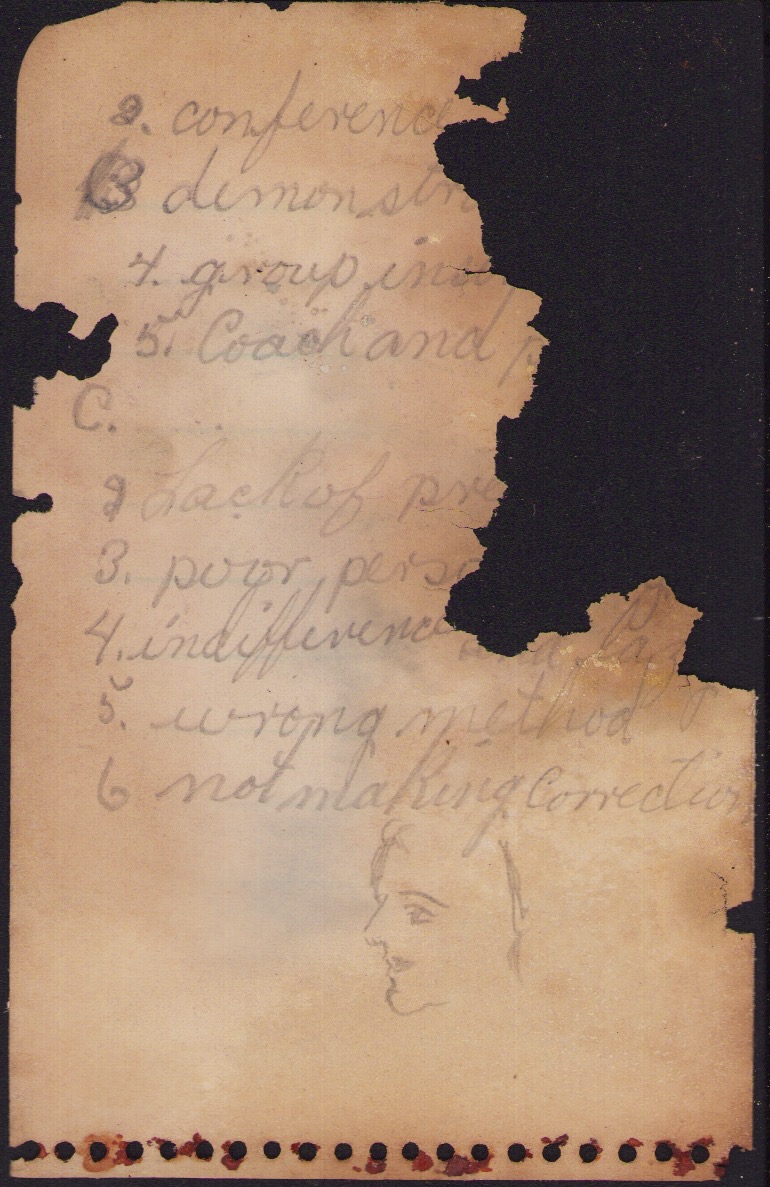 2. conferenc
3 demonstr
4. group ins
5. Coach and p
C.
2 Lack of pre
3. poor perso
4. indifferenc and laz
5. wrong method
6 not making correction